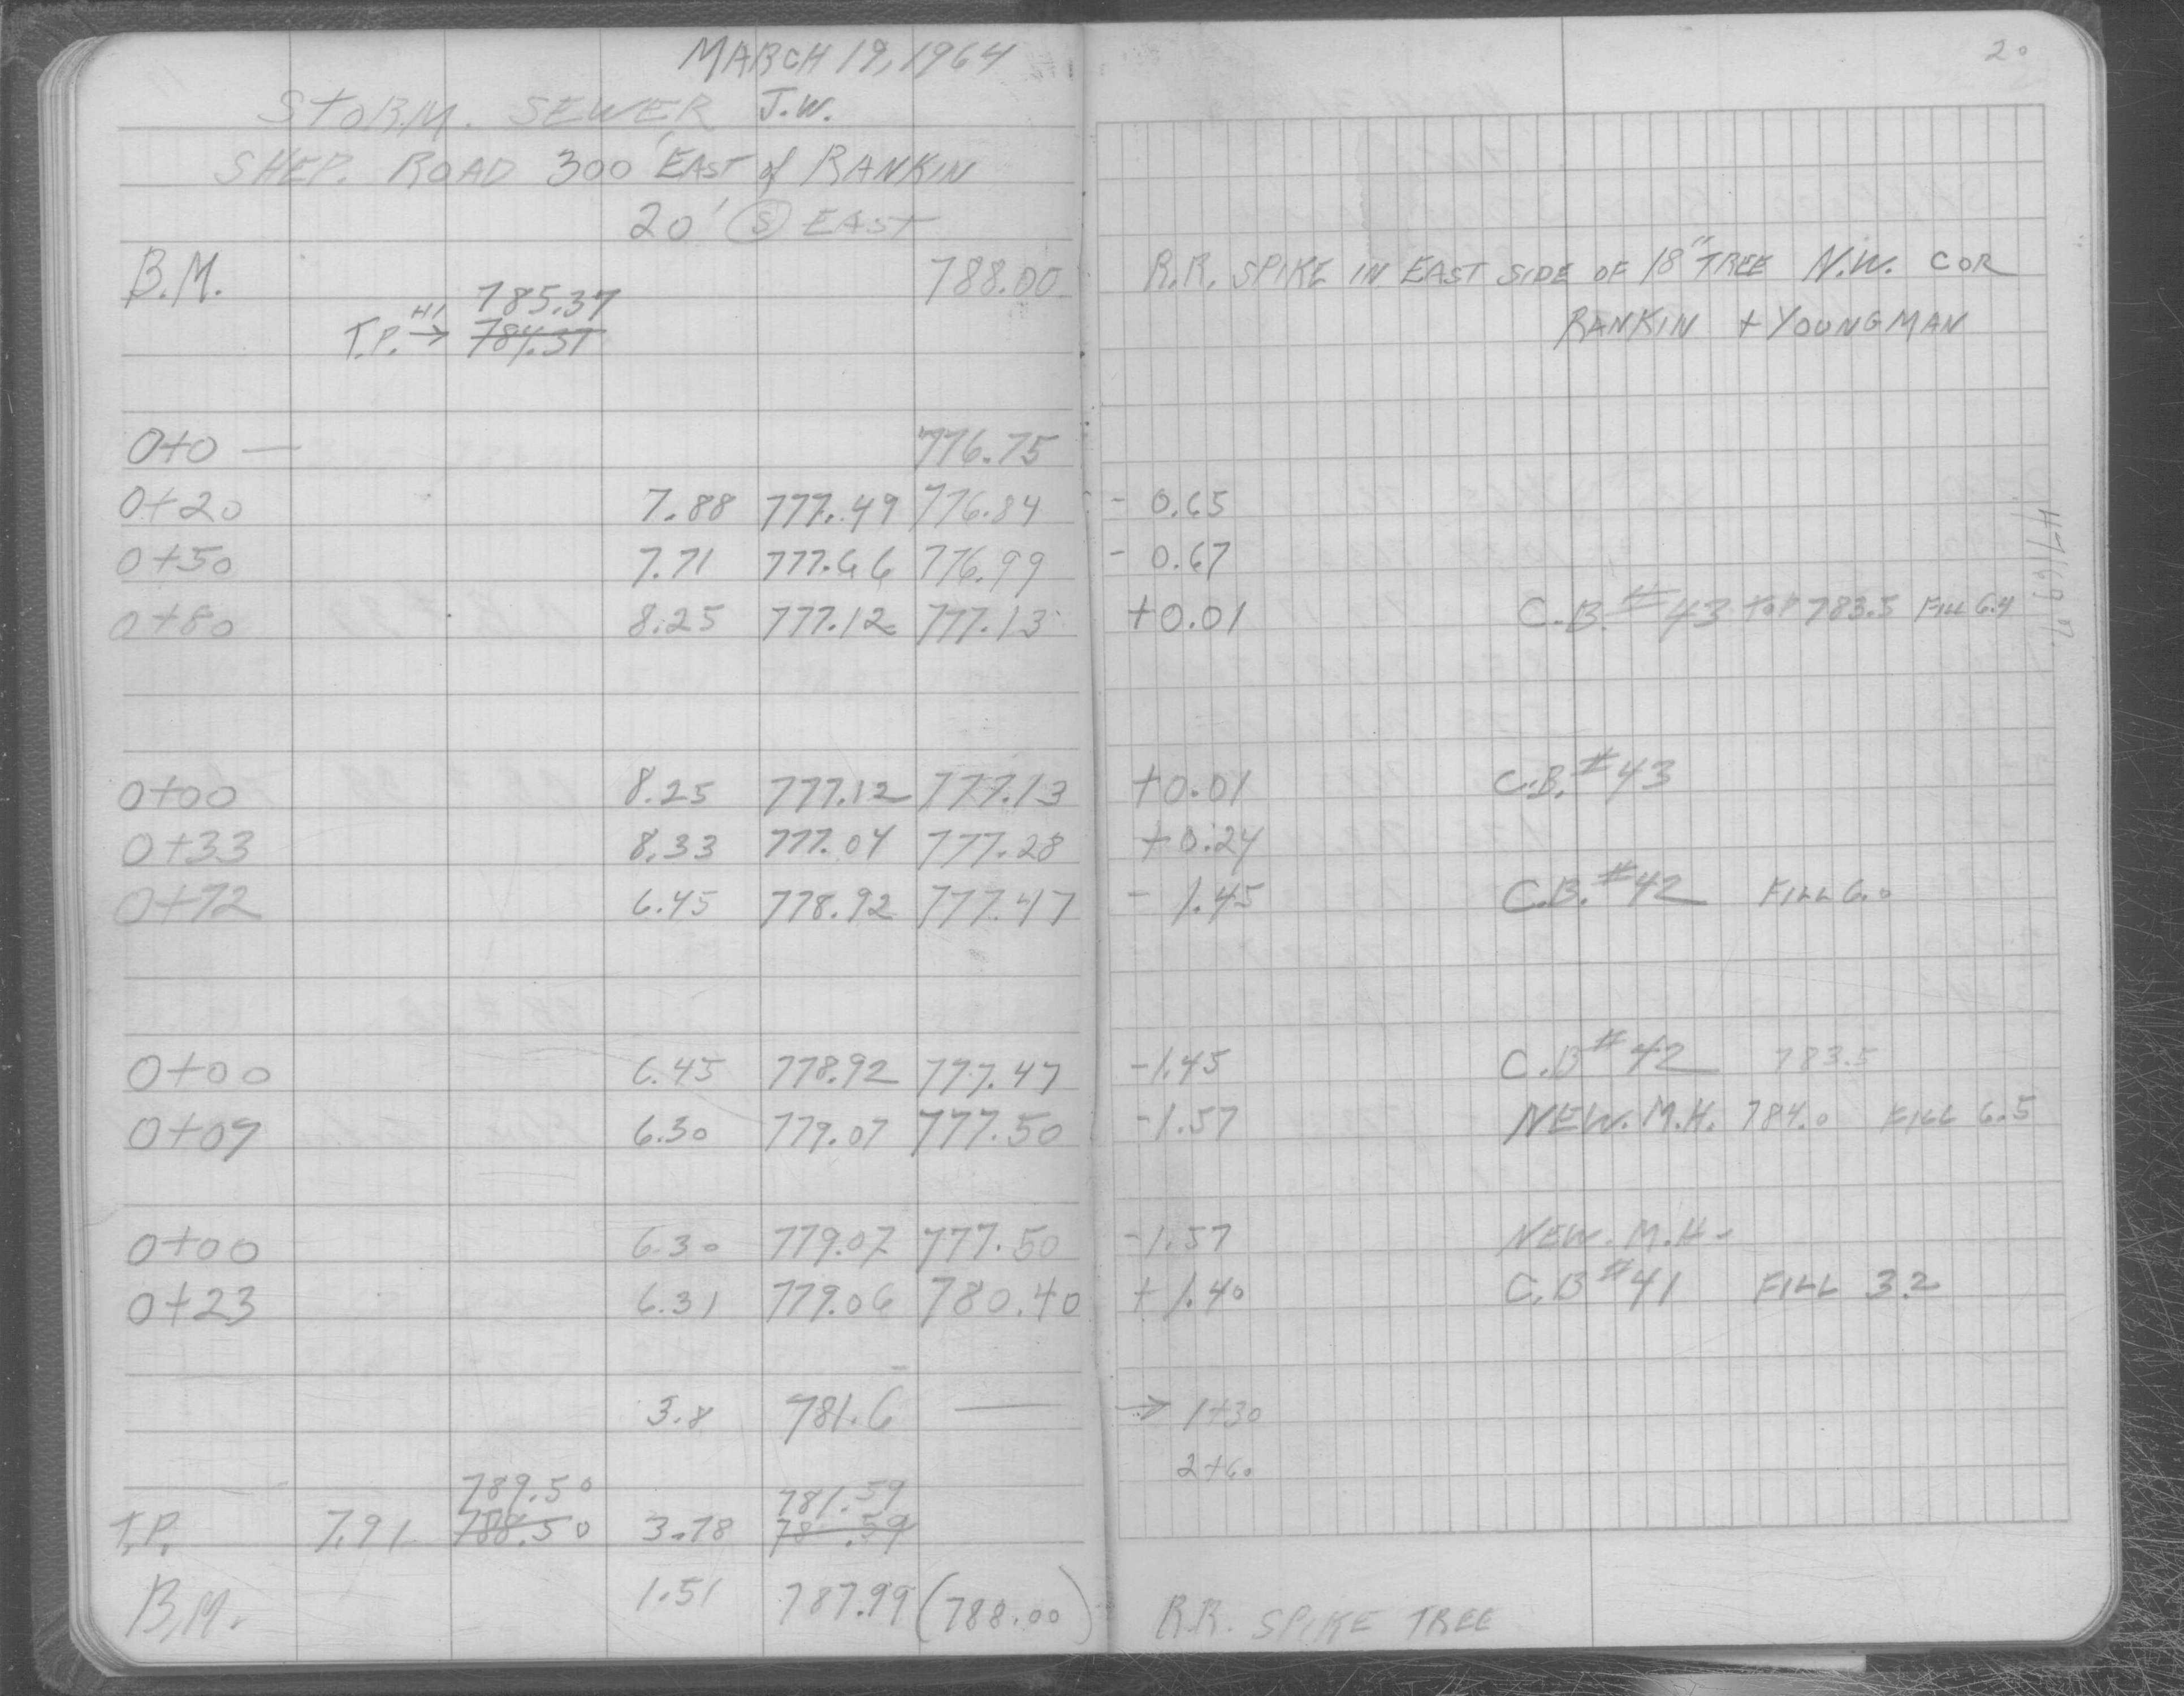 MARCH 19, 1964
20
STORM. SEWER J.W.
SHEP. ROAD 300' EAST of RANKIN
20' (S) EAST
B.M. 788.00 R.R. SPIKE IN EAST SIDE OF 18" TREE N.W. COR
RANKIN + YOUNGMAN
785.37
T.P. HI → 784.37
0+0 — 776.75
0+20 7.88 777.49 776.84 - 0.65
0+50 7.71 777.66 776.99 - 0.67
0+80 8.25 777.12 777.13 +0.01 C.B. #43 TOP 783.5 FILL 6.4
0+00 8.25 777.12 777.13 +0.01 C.B. #43
0+33 8.33 777.04 777.28 +0.24
0+72 6.45 778.92 777.47 - 1.45 C.B. #42 FILL 6.0
0+00 6.45 778.92 777.47 -1.45 C.B #42 783.5
0+09 6.30 779.07 777.50 -1.57 NEW. M.H. 784.0 FILL 6.5
0+00 6.30 779.07 777.50 -1.57 NEW. M.H-
0+23 6.31 779.06 780.40 + 1.40 C.B #41 FILL 3.2
3.8 781.6 — → 1+30
2+60
789.50 781.59
T.P. 7.91 788.50 3.78 78 .59
B.M. 1.51 787.99 (788.00) R.R. SPIKE TREE